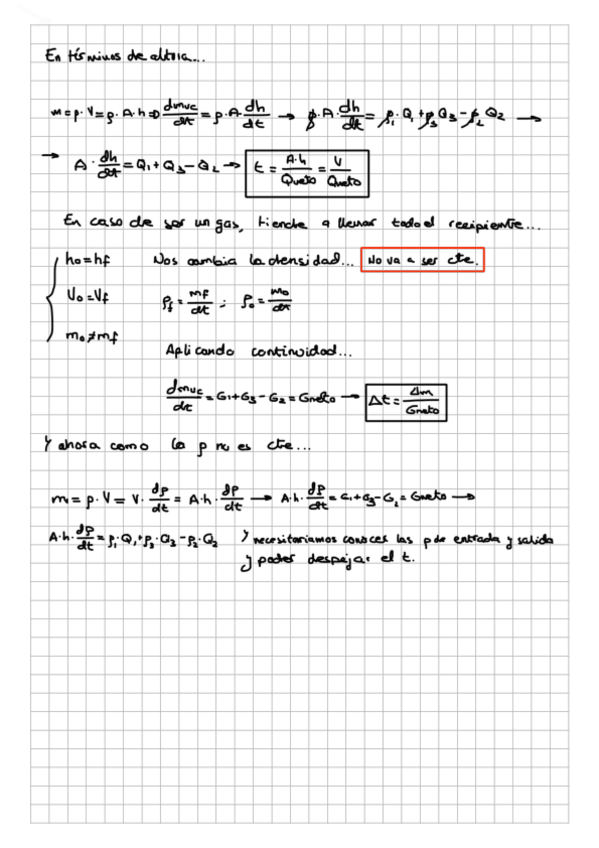 En términos de altura...
m = ρ · V = ρ · A · h => dmvc/dt = ρ · A · dh/dt → ρ · A · dh/dt = ρ₁ · Q₁ + ρ₃ Q₃ - ρ₂ Q₂ →
→ A · dh/dt = Q₁ + Q₃ - Q₂ → t = A·h/Qneto = V/Qneto
En caso de ser un gas, tiende a llenar todo el recipiente...
h₀ = hf Nos cambia la densidad... No va a ser cte.
V₀ = Vf ρf = mf/dt ; ρ₀ = m₀/dt
m₀ ≠ mf
Aplicando continuidad...
dmvc/dt = G₁ + G₃ - G₂ = Gneto → Δt = Δm/Gneto
Y ahora como la ρ no es cte...
m = ρ · V = V · dρ/dt = A·h · dρ/dt → A·h · dρ/dt = G₁ + G₃ - G₂ = Gneto →
A·h · dρ/dt = ρ₁ · Q₁ + ρ₃ · Q₃ - ρ₂ · Q₂ Y necesitaríamos conocer las ρ de entrada y salida
y poder despejar el t.